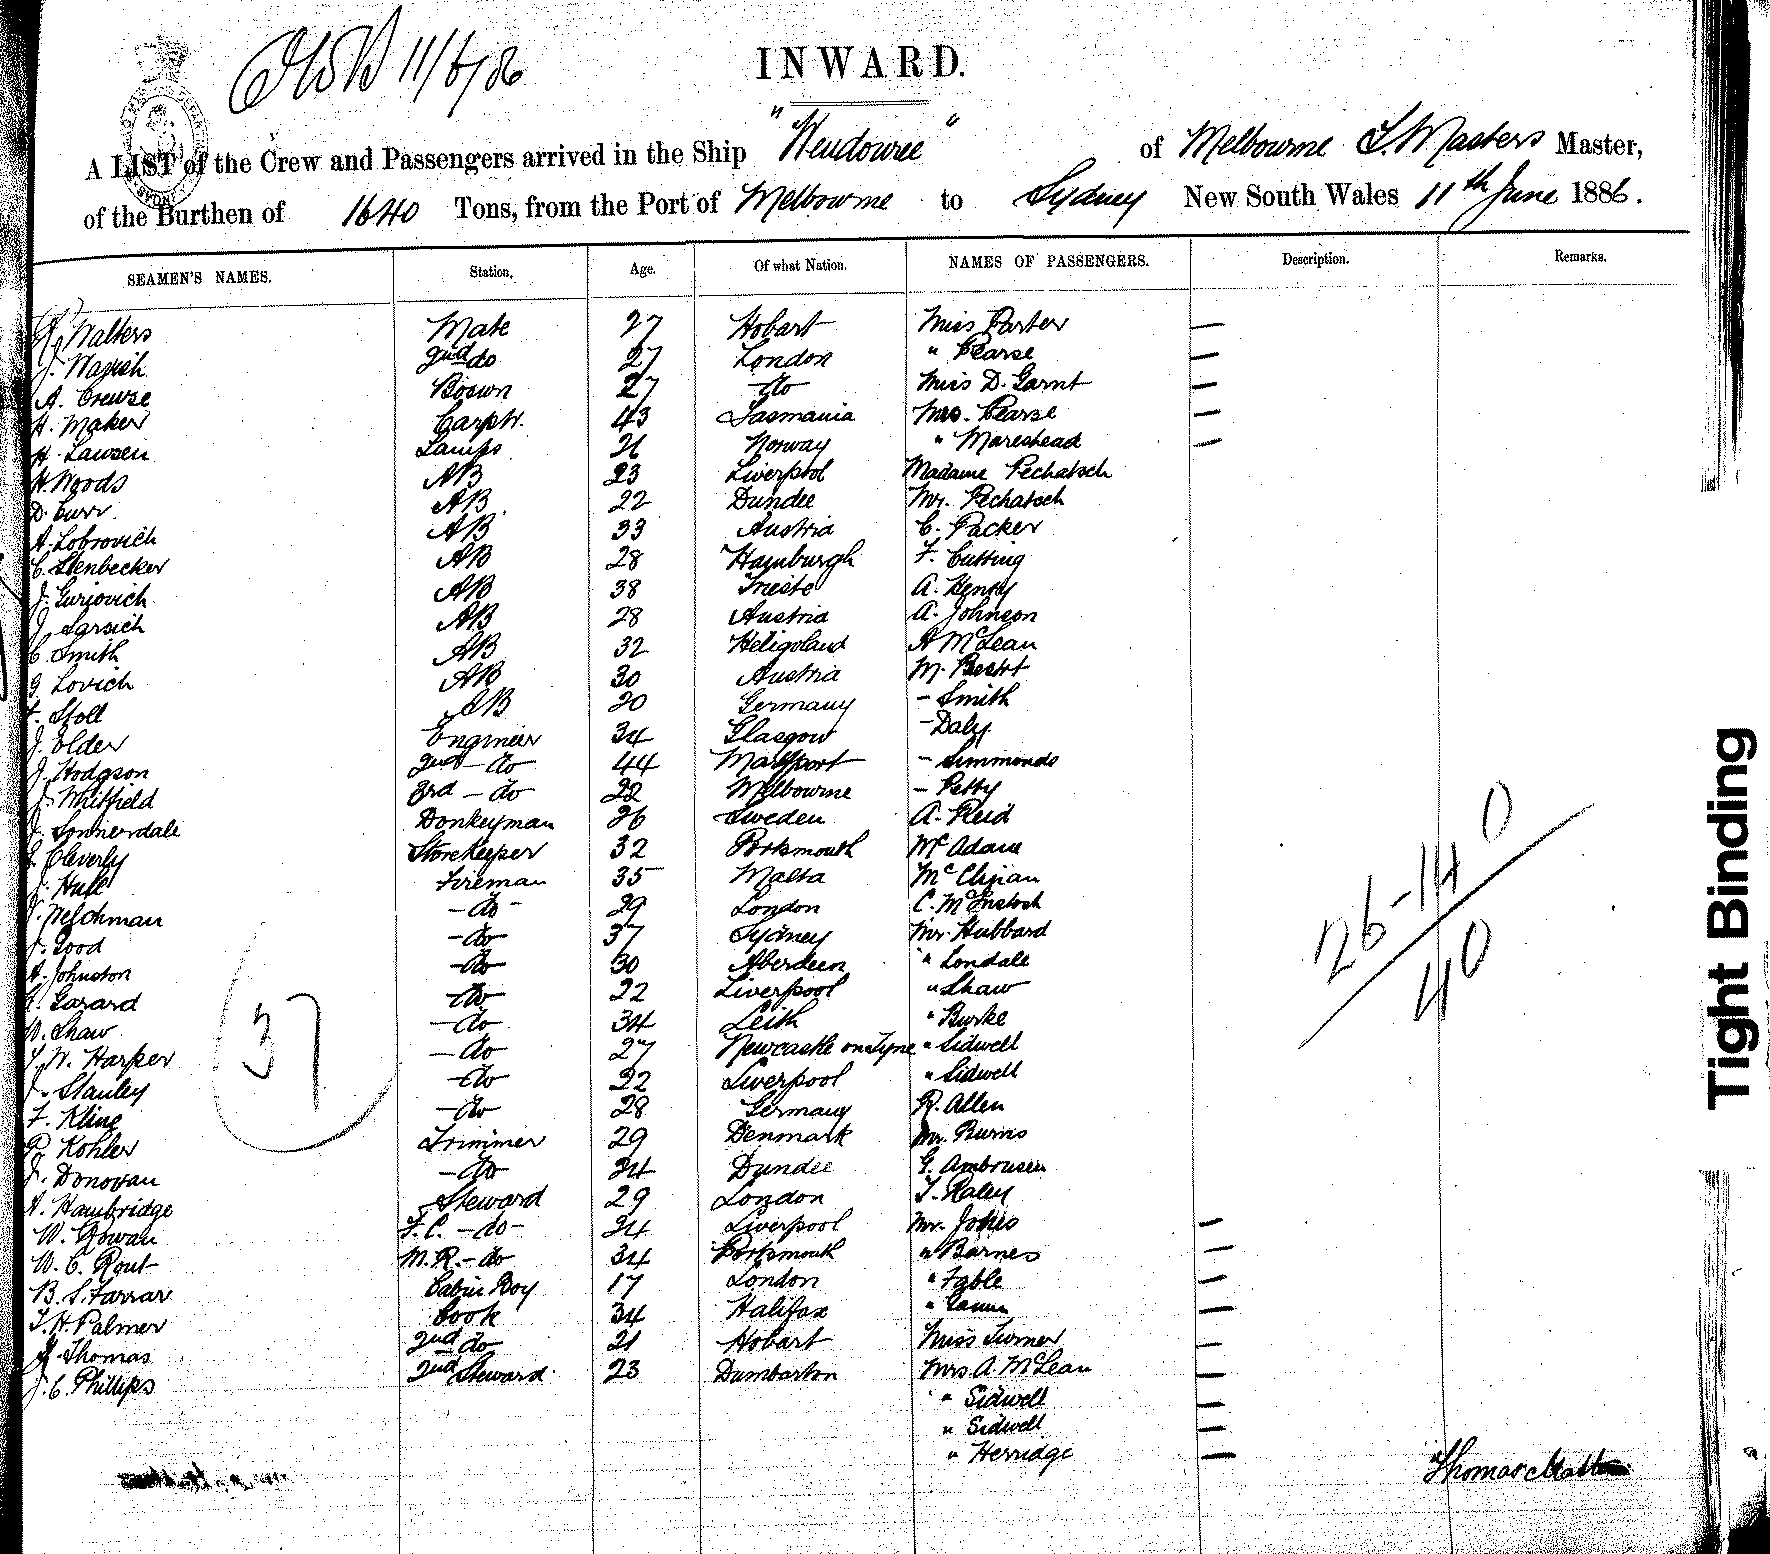 11/6/86
INWARD.
A LIST of the Crew and Passengers arrived in the Ship "Wendouree" of Melbourne T. Masters Master,
of the Burthen of 1640 Tons, from the Port of Melbourne to Sydney New South Wales 11th June 1886.
SEAMEN'S NAMES. Station. Age. Of what Nation. NAMES OF PASSENGERS. Description. Remarks.
Walters Mate 27 Hobart Miss Porter —
J. 2nd do 27 London " Pearse —
A. Crewse Bosun 27 do Miss D. Garnt —
H. Maker Carptr. 43 Tasmania Mrs. Pearse —
H. Lawsen Lamps 21 Norway " Mareshead —
H. Woods AB 23 Liverpool Madame Pechatsch
D. Curr AB 22 Dundee Mr. Pechatsch
A. Lobrovich AB 33 Austria C. Packer
C. Stenbecker AB 28 Hamburgh F. Cutting
J. Gurjovich AB 38 Trieste A. Henry
J. Larsich AB 28 Austria A. Johnson
C. Smith AB 32 Heligoland A McLean
G. Lovich AB 30 Austria M.
F. Stoll AB 20 Germany — Smith
J. Elder Engineer 34 Glasgow — Daly
J. Hodgson 2nd — do 44 Maryport — Simmonds
J. Whitfield 3rd — do 22 Melbourne — Petty
J. Sonnerdale Donkeyman 26 Sweden A. Reid
J. Cleverly Storekeeper 32 Portsmouth Mc Adam
J. Hull Fireman 35 Malta
J. Welchman — do — 29 London C. McIntosh
J. Good — do 37 Sydney Mr. Hubbard
A. Johnston — do 30 Aberdeen " Londale
Garard — do 22 Liverpool " Shaw
W. Shaw — do 34 Leith " Burke
J. W. Harper — do 27 Newcastle on Tyne " Sidwell
J. Stanley — do 22 Liverpool " Sidwell
F. Kline — do 28 Germany R. Allen
R. Kohler Trimmer 29 Denmark Mr. Burns
J. Donovan — do 24 Dundee G. Ambrusen
A. Hambridge Steward 29 London T. Raley
W. Rowan F.C. — do — 24 Liverpool Mr. Jones —
W. C. Rout M.R. — do 34 Portsmouth " Barnes —
B. S. Farrar Cabin Boy 17 London " Fable —
T. H. Palmer Cook 34 Halifax " —
Thomas 2nd do 21 Hobart Miss Turner —
J. C. Phillips 2nd Steward 23 Dumbarton Mrs. A. McLean —
" Sidwell —
" Sidwell —
" Herridge —
37
26-14 0
40
Thomas
Tight Binding